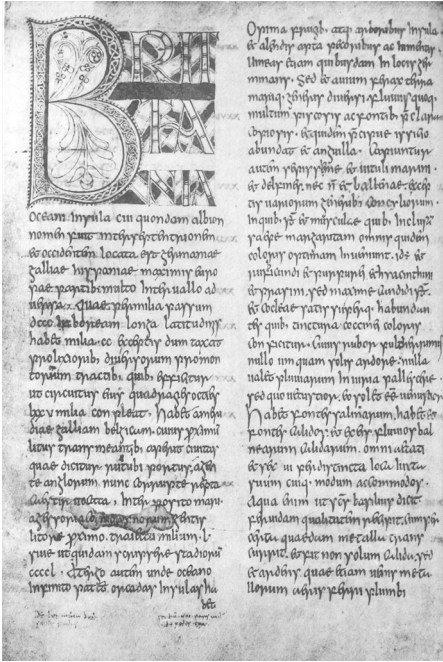 BRIT
TA
NIA
oceani insula cui quondam albion
nomen fuit inter septentrionem
et occidentem locata est germaniae
galliae hispaniae maximis euro
pae partibus multo interuallo ad
uersa. Quae per milia passuum
dccc in boream longa latitudinis
habet milia cc exceptis dum taxat
prolixioribus diuersorum promon
torium tractibus quib; efficitur
ut circuitus eius quadragies octies
lxx u milia conpleat. Habet a meri
diae galliam belgicam cuius proximu
litus transmeantibus aperit ciuitas
quae dicitur rutubi portus, a gen
te anglorum nunc corrupte repta
caestir uocata, interposito mari
a gessoriaco morinorum gentis
litore proximo. traiectu milium. L
siue ut quidam scripsere stadiorum
ccccl. A tergo autem unde oceano
infinito patet orcadas insulas ha
bet
Opima frugib; atque arboribus insula
et alendis apta pecoribus ac iumentis
uineas etiam quibusdam in locis ger
minans. Sed et auium ferax terra
marique. generis diuersi fluuiis quoque
multum piscosis ac fontib; p̄claris
copiosis. et quidem p̄cipue issicio
abundat et anguilla. Capiuntur
autem saepissime et uituli marini
et delphines nec n̄ et ballenae. excep
tis uariorum generib; concyliorum
in quib; s̄ et musculae quib; inclusam
saepe margaritam omnis quidem
coloris optimam inueniunt. id ē et
rubicundi et purpurei et hyacinthini
et prasini. sed maxime candidi. s̄
et cocleae satis superque. habundan
ter quib; tinctura coccinei coloris
conficitur. Cuius rubor pulcherrimus
nullo umquam solis ardore. nulla
ualet pluuiarum iniuria pallescere
sed quo uetustior. eo solet ēē uenustior
Habet fontes salinarum, habet et
fontes calidos. et ex eis fluuios bal
nearum calidarum. omni aetati
et sexui per distincta loca iuxta
suum cuiq; modum accommodos
Aqua enim ut scs basilius dicit
feruidam qualitatem recipit, cum per
certa quaedam metalla trans
currit. et fit non solum calida, sed
et ardens. quae etiam uenis metal
lorum aeris ferri plumbi